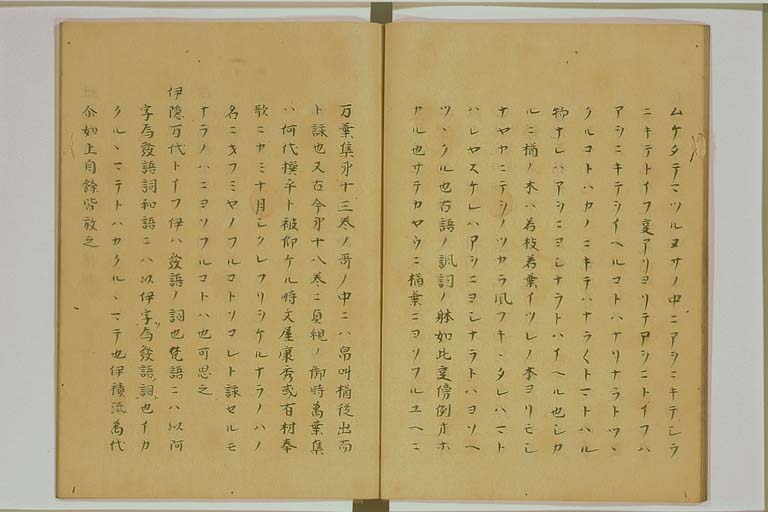 ムケタテマツルヌサノ中ニアシニキテシラ
ニキテトイフ事アリヨリテアシニトイフハ
アシニキテシイヘルコトハナリナラトツヽ
クルコトハカノニキテハナラくトマトハル
物ナレハアシニヨシナラトハイヘル也シカ
ルニ楢ノ木ハ若枝若葉イツレノ木ヨリモシ
ナヤカニテシノツカラ風フキ タレハマト
ハレヤスケレハアシニヨシナラトハヨソヘ
ツヽクル也古語ノ諷詞ノ躰如此事傍例オホ
カル也サテカヤウニ楢葉ニヨソフルユヘニ
万葉集第十三巻ノ哥ノ中ニハ帛叫楢従出而
ト詠也又古今第十八巻ニ貞観ノ御時萬葉集
ハ何代撰乎ト被仰ケル時文屋康秀或有材奉
歌ニカミナ十月シクレフリシケルナラノハノ
名ニヲフミヤノフルコトソコレト詠セルモ
ナラノハニヨソフルコトハ也可思之
伊隠万代トイフ伊ハ發語ノ詞也梵語ニハ以阿
字為發語詞和語ニハ以伊字為發語詞也イカ
クルヽマテトハカクルヽマテ也伊積流萬代
尒如上自餘皆放之